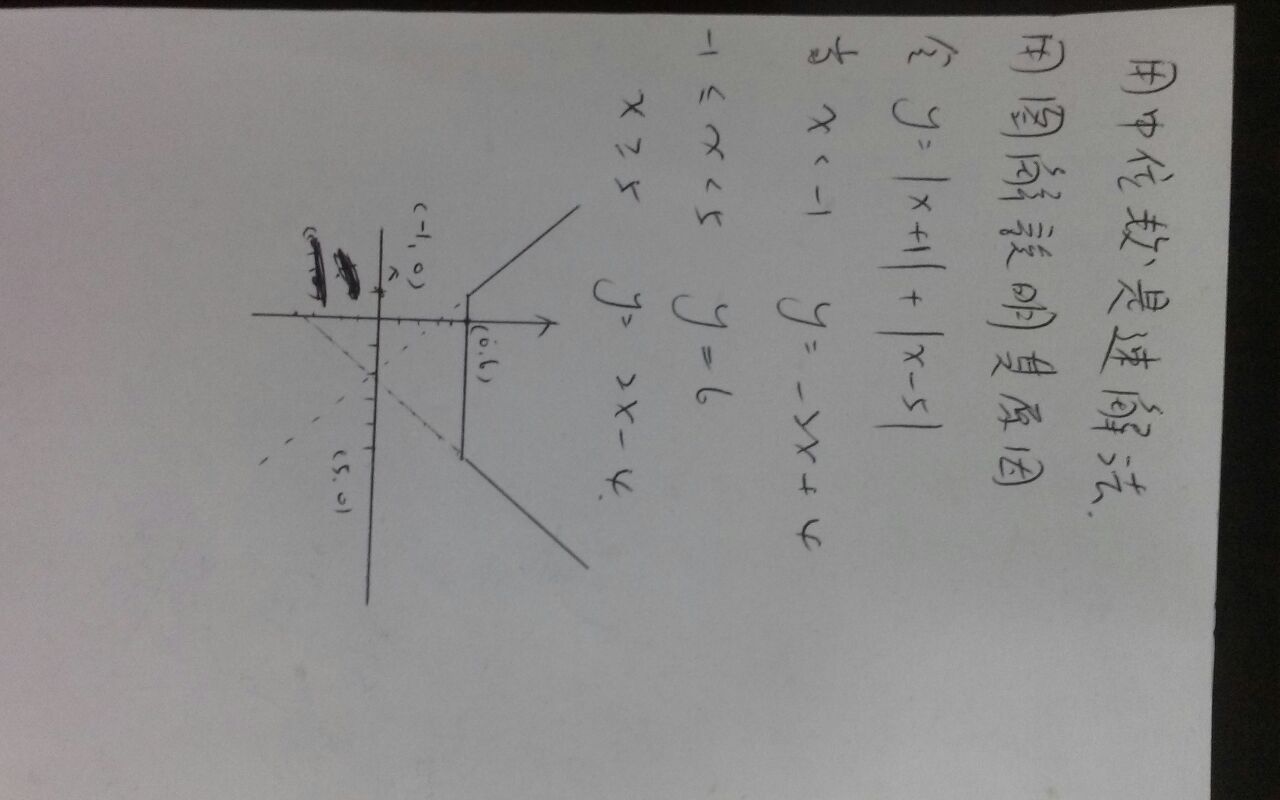 用中位數是速解法.
用圖解說明其原因
令 y=|x+1|+|x-5|
若 x<-1 y=-2x+4
-1≤x<5 y=6
x≥5 y=2x-4.
(0.6)
(-1,0)
(5.0)